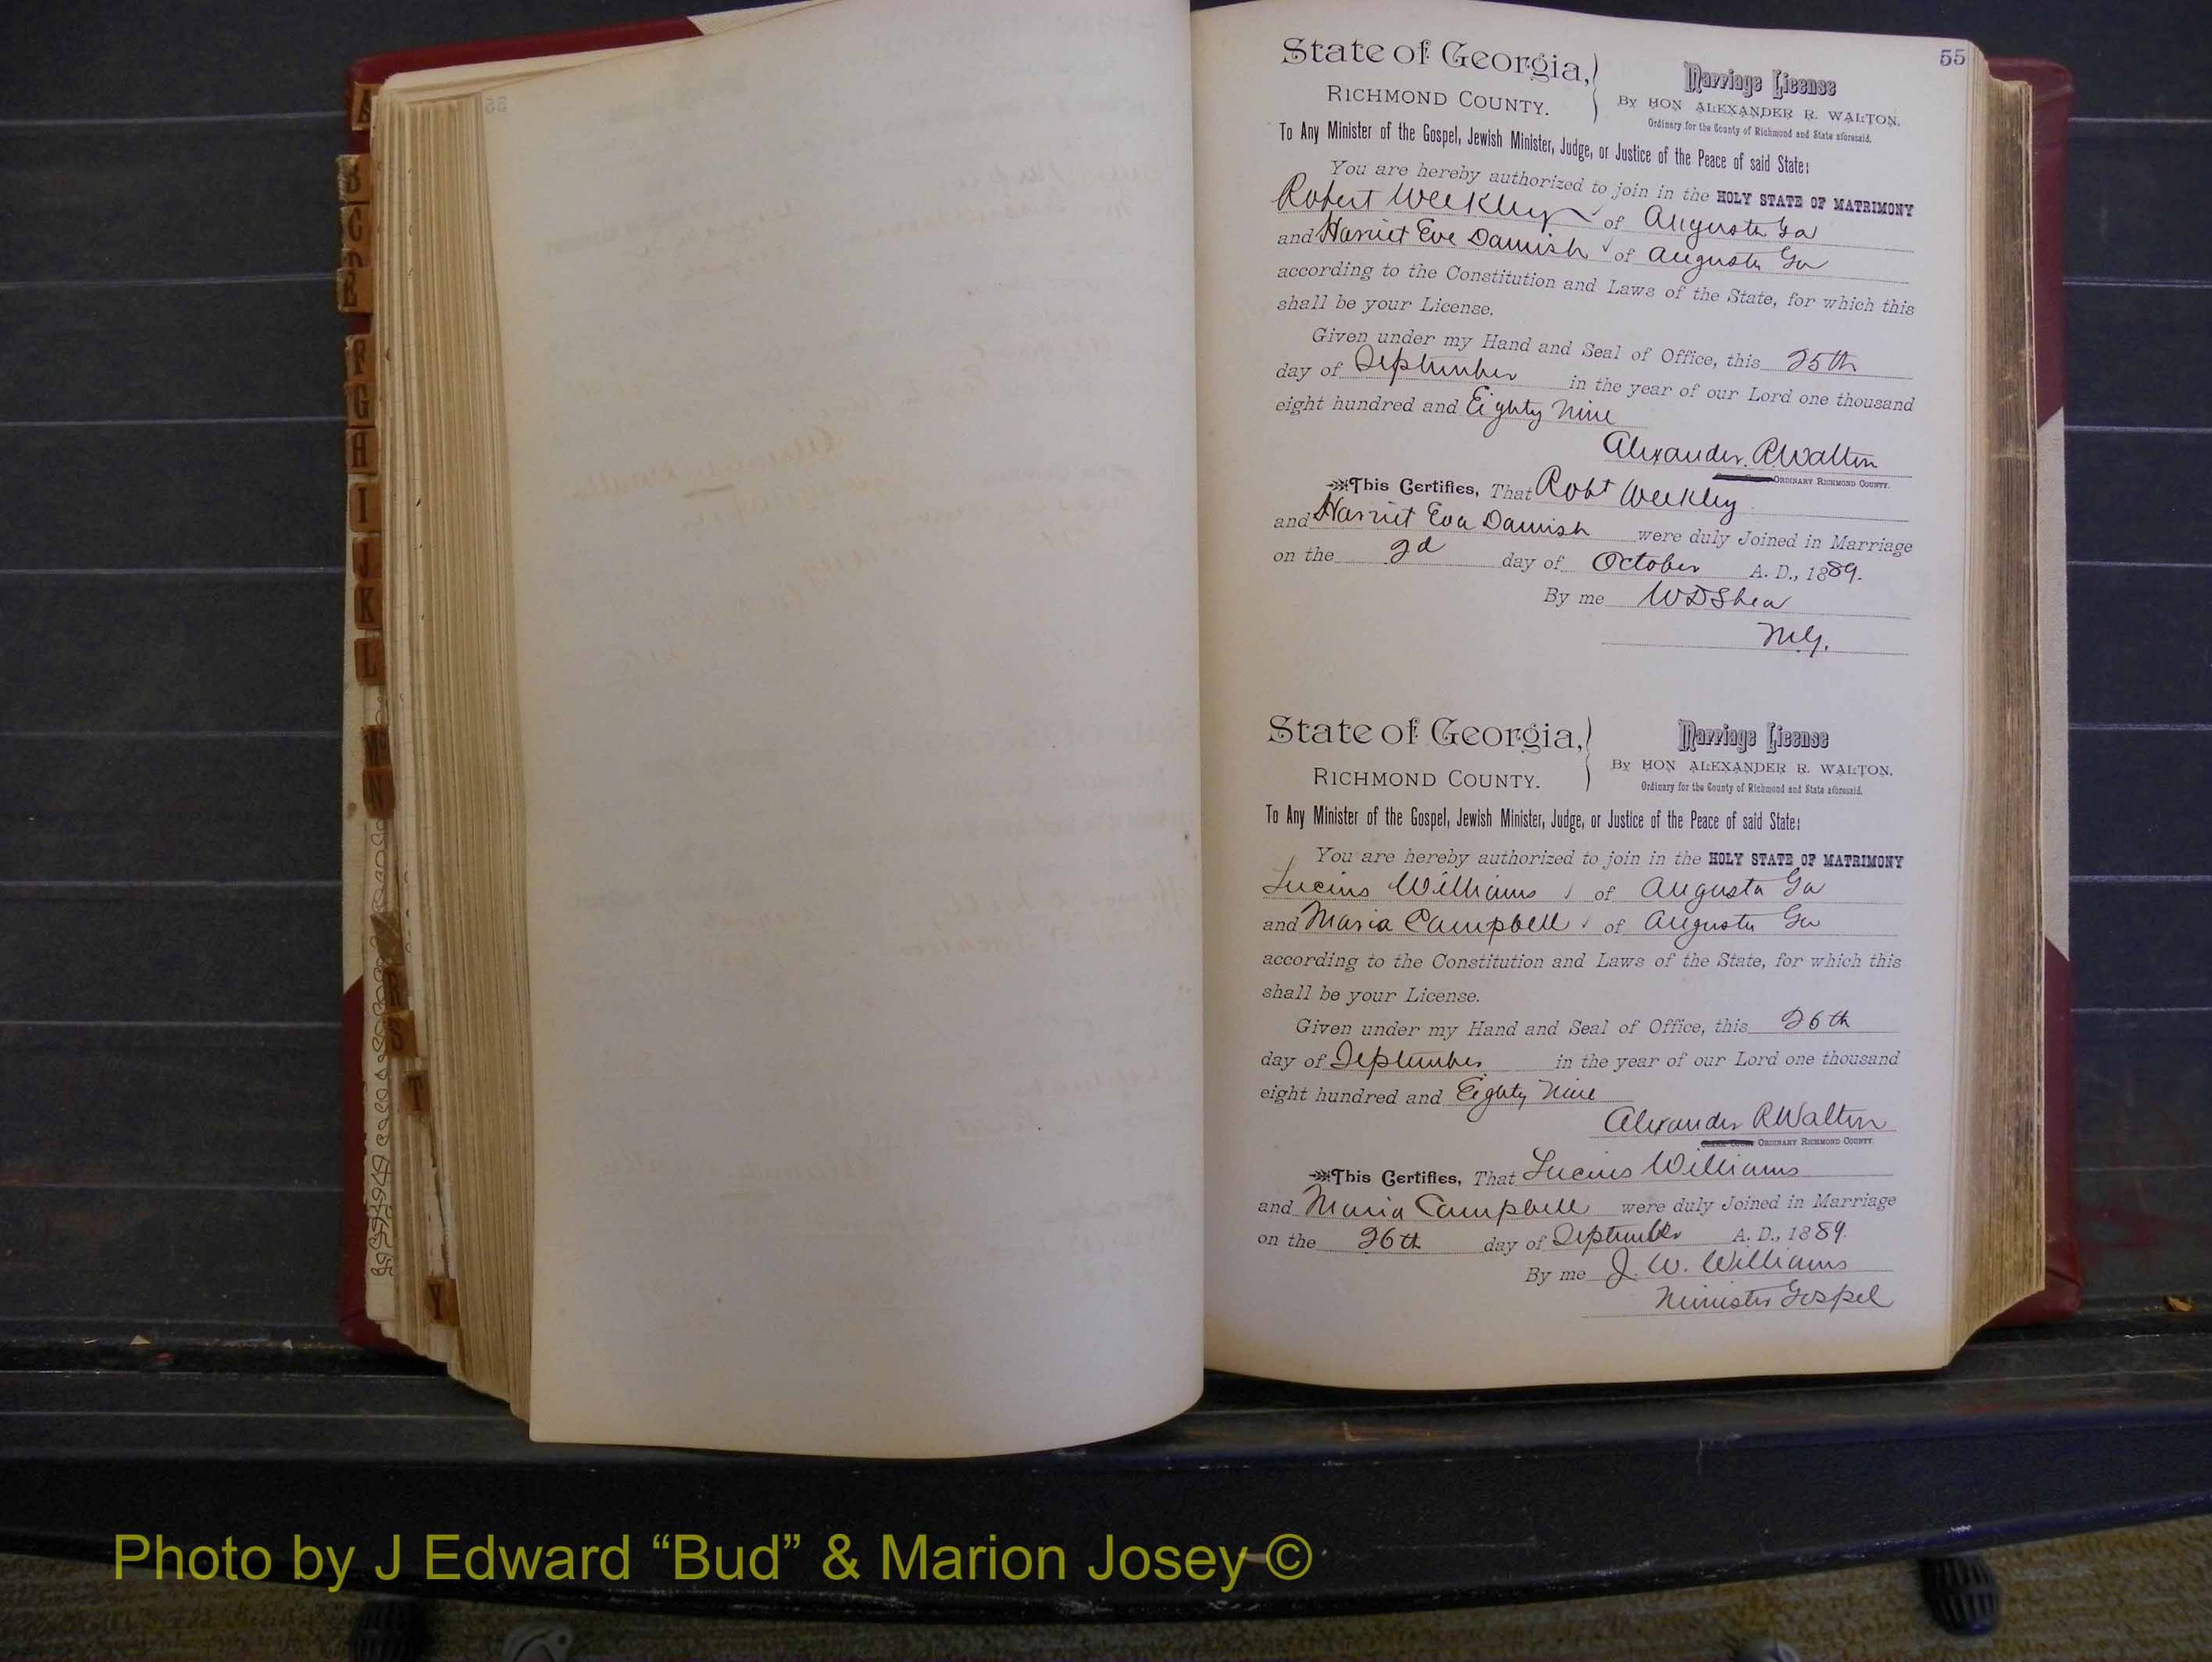 55
State of Georgia,
RICHMOND COUNTY.
Marriage License
By HON ALEXANDER R. WALTON.
Ordinary for the County of Richmond and State aforesaid.
To Any Minister of the Gospel, Jewish Minister, Judge, or Justice of the Peace of said State:
You are hereby authorized to join in the HOLY STATE OF MATRIMONY
Robert Weekley of Augusta Ga
and Harriet Eve Damish of Augusta Ga
according to the Constitution and Laws of the State, for which this
shall be your License.
Given under my Hand and Seal of Office, this 25th
day of September in the year of our Lord one thousand
eight hundred and Eighty Nine
Alexander R Walton
ORDINARY RICHMOND COUNTY.
This Certifies, That Robt Weekley
and Harriet Eva Damish were duly Joined in Marriage
on the 2d day of October A. D., 1889.
By me W D Shea
M.G.
State of Georgia,
RICHMOND COUNTY.
Marriage License
By HON ALEXANDER R. WALTON.
Ordinary for the County of Richmond and State aforesaid.
To Any Minister of the Gospel, Jewish Minister, Judge, or Justice of the Peace of said State:
You are hereby authorized to join in the HOLY STATE OF MATRIMONY
Lucius Williams of Augusta Ga
and Maria Campbell of Augusta Ga
according to the Constitution and Laws of the State, for which this
shall be your License.
Given under my Hand and Seal of Office, this 26th
day of September in the year of our Lord one thousand
eight hundred and Eighty Nine
Alexander R Walton
ORDINARY RICHMOND COUNTY.
This Certifies, That Lucius Williams
and Maria Campbell were duly Joined in Marriage
on the 26th day of September A. D., 1889.
By me J. W. Williams
Minister Gospel
B
C
D
E
F
G
H
I
J
K
L
M
N
R
S
T
Y
Photo by J Edward “Bud” & Marion Josey ©